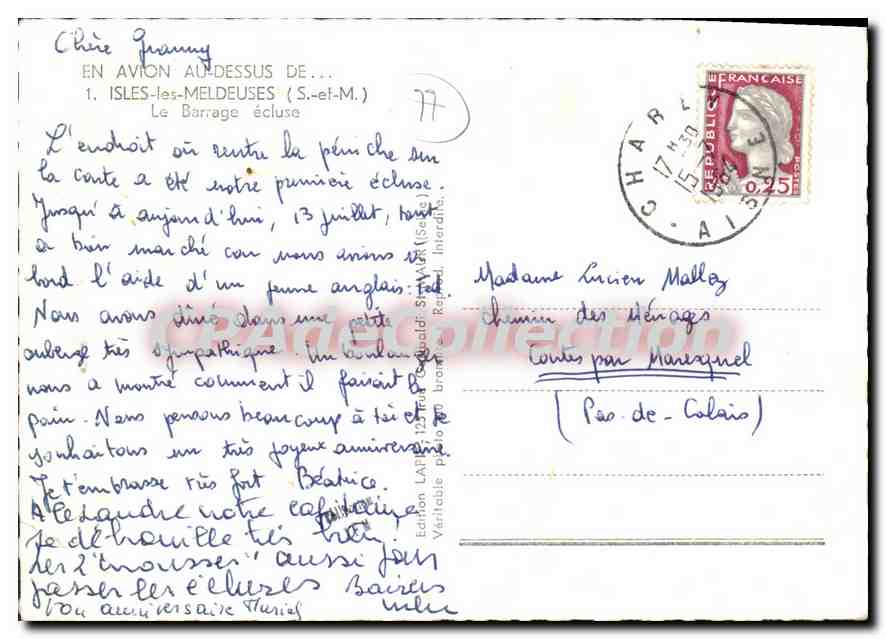 Chère Granny
EN AVION AU-DESSUS DE...
1. ISLES-les-MELDEUSES (S.-et-M.)
Le Barrage écluse
77
L'endroit où rentre la péniche sur
la carte a été notre première écluse.
Jusqu'à aujourd'hui, 13 juillet, tout
a bien marché car nous avions à
bord l'aide d'un jeune anglais: Ted.
Nous avons dîné dans une petite
auberge très sympathique. Un boulanger
nous a montré comment il faisait le
pain. Nous pensons beaucoup à toi et te
souhaitons un très joyeux anniversaire.
Je t'embrasse très fort Béatrice.
Alexandre notre capitaine
se débrouille très bien.
Les 2 "mousses" aussi pour
passer les écluses Baisers
bon anniversaire Muriel
Edition LAPIE, 125 rue Garibaldi St-MAUR (Seine)
Véritable photo au bromure. Reprod. Interdite.
REPUBLIQUE FRANÇAISE
POSTES
0,25
CHARLY
17 H 30
15
AISNE
Madame Lucien Mallez
chemin des Ménages
Contes par Maresquel
(Pas-de-Calais)
CPAdeCollection